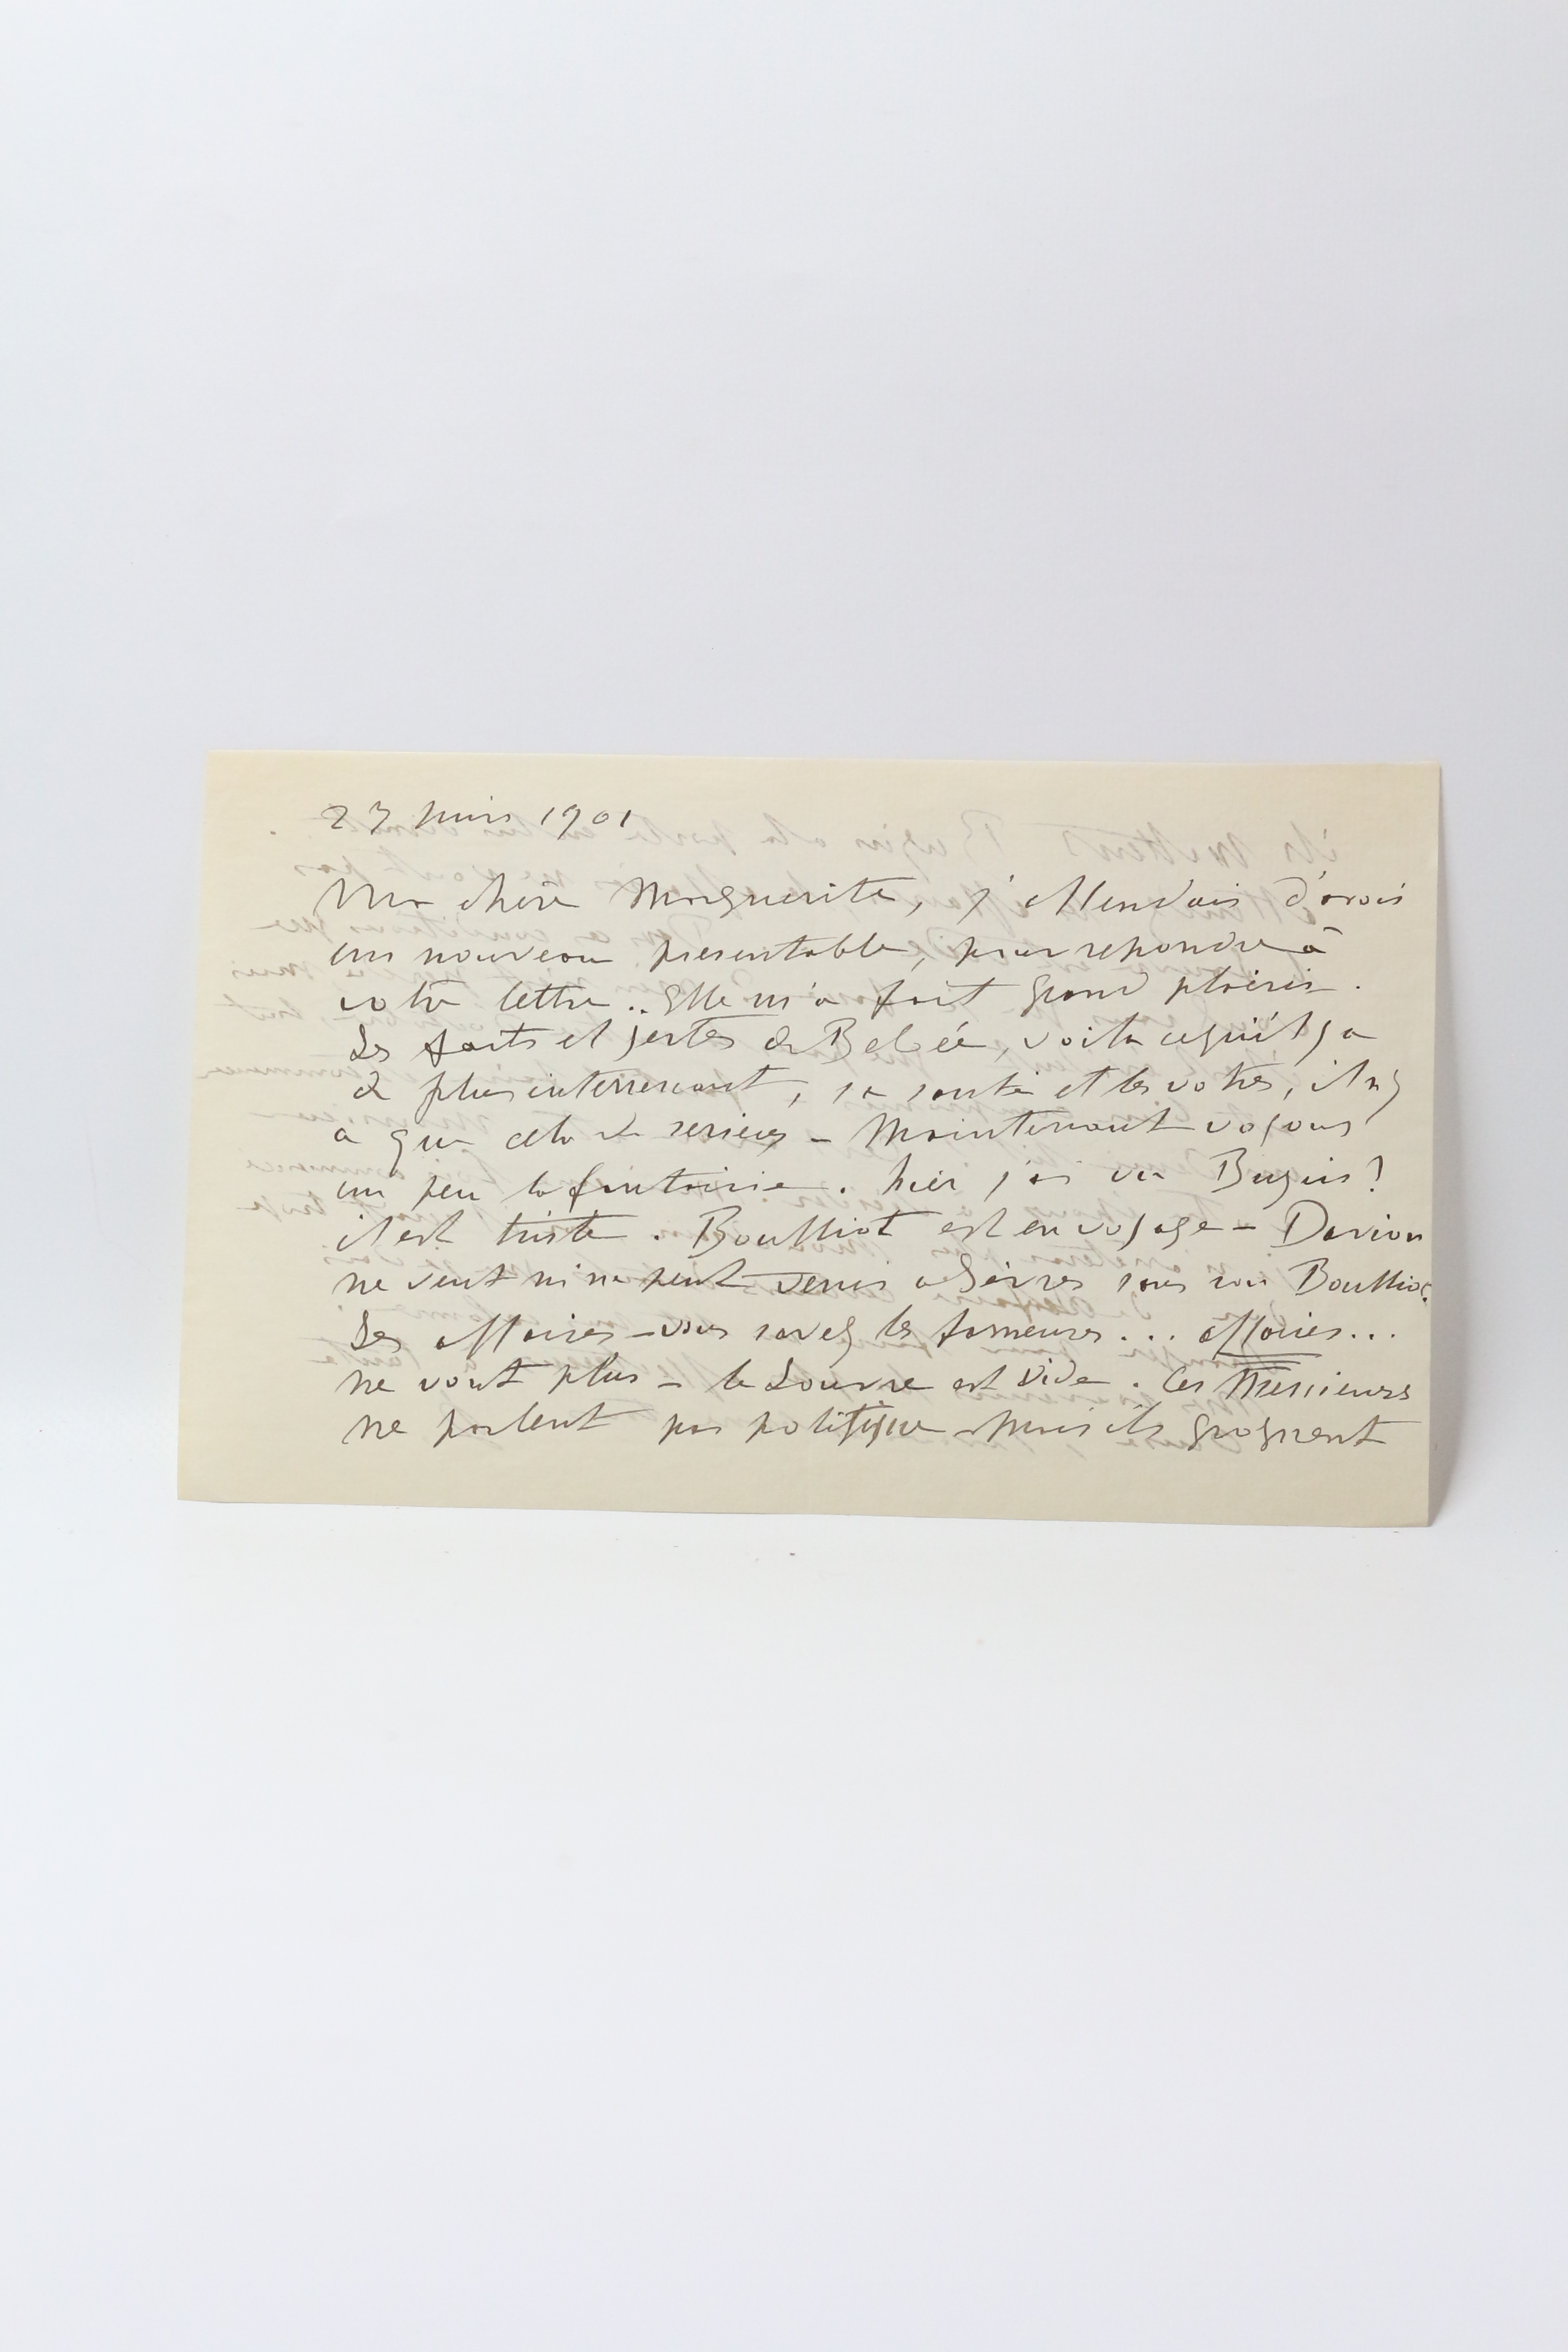 1901
Ma chère Marguerite, j'attendais d'avoir
un nouveau presentable, pour repondre à
votre lettre.. Elle m'a fait grand plaisir.
Les faits et jestes de Bebée, voila cequ'il y a
de plus interressant, sa santé et les votres, il n'y
a que cela de serieux - Maintenant voyons
un peu la fantaisie. hier j'ai vu
il est triste. Boulliot est en voyage - Davion
ne veut ni ne peut venir a Sèvres sans son Boulliot.
Les affaires - vous savez les fameuses... affaires...
ne vont plus - le Louvre est vide. Ces Messieurs
ne parlent pas politique - Mais ils grognent